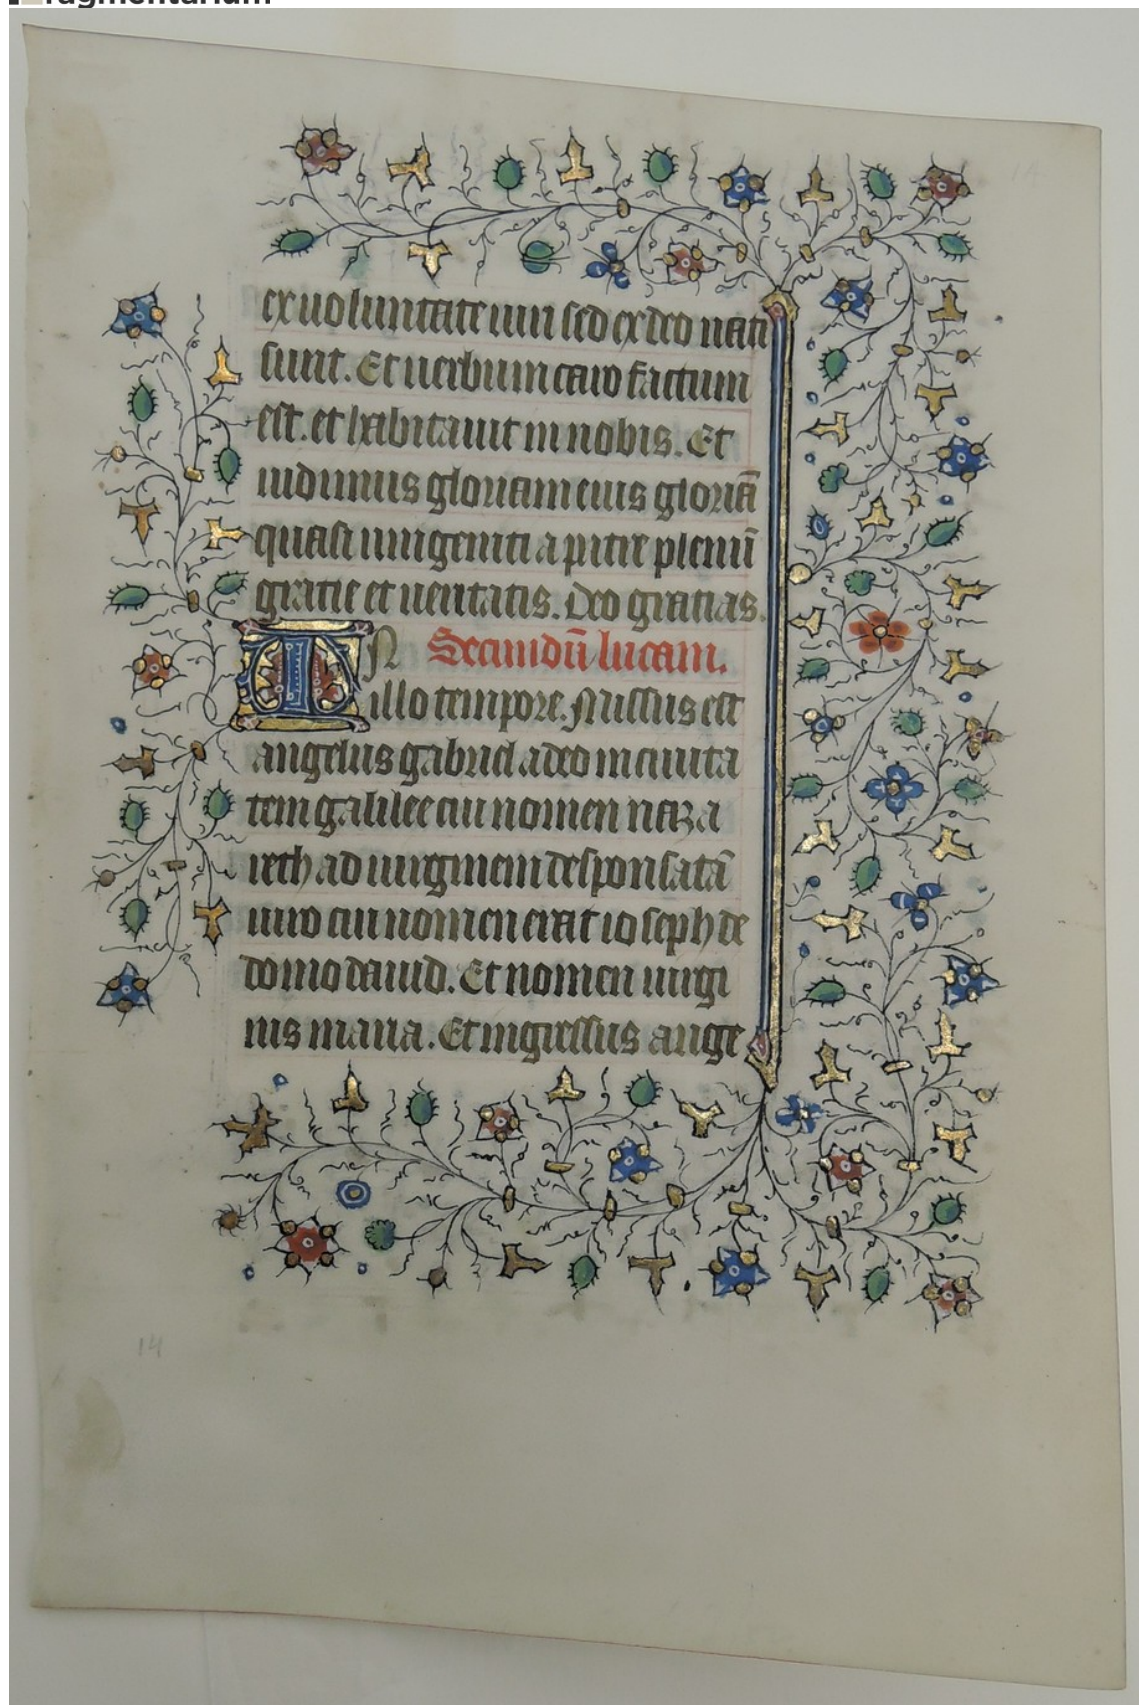 ragmentarium
ex uoluntate uiri sed ex deo nati
sunt. Et uerbum caro factum
est. et habitauit in nobis. Et
uidimus gloriam eius gloriā
quasi unigeniti a patre plenū
gratie et ueritatis. Deo gratias.
IN Secundū lucam.
illo tempore. Missus est
angelus gabriel a deo in ciuita
tem galilee cui nomen naza
reth ad uirginem desponsatā
uiro cui nomen erat ioseph de
domo dauid. Et nomen uirgi
nis maria. Et ingressus ange
14